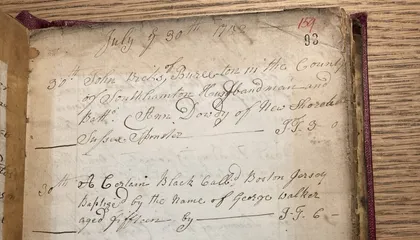 July y 30th
159
93
30th John Dicks, Burreton in the County
of Southamton Husbandman and
Ann Dowdy of New Shoreh
Sussex Spinster — J:J: 3 - 0
30th A Certain Black Call'd Boston Jersey
Baptized by the Name of George Walker
aged fifteen by — J:J: 6 -